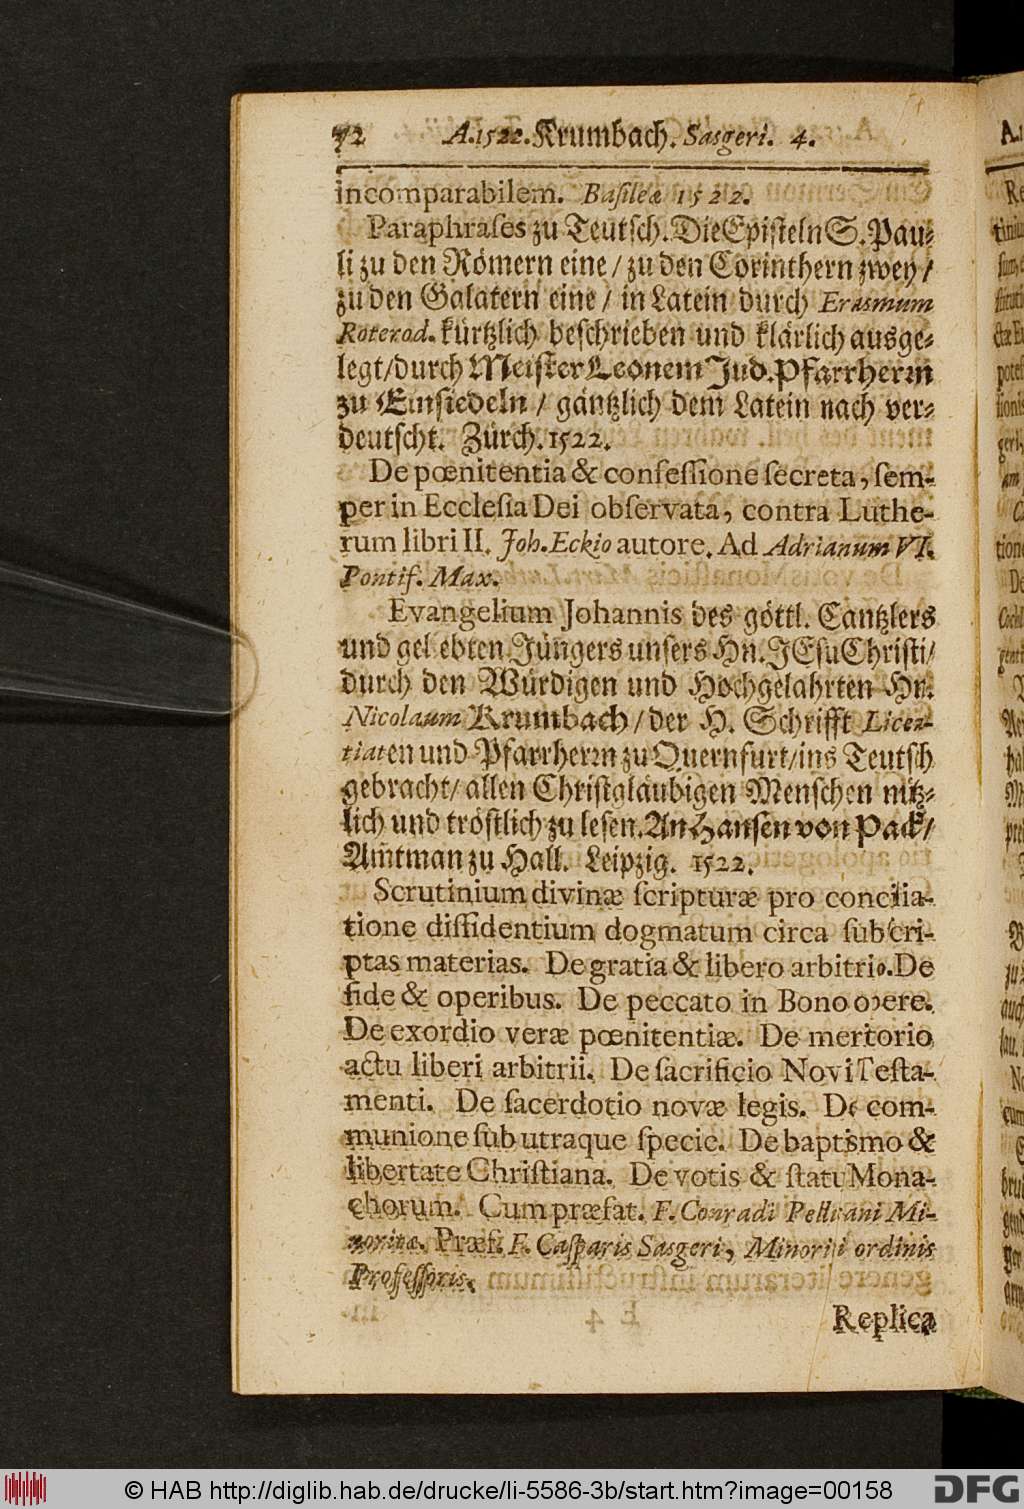 72 A. 1522. Krumbach. Sasgeri. 4.
incomparabilem. Basileæ 1522.
Paraphrases zu Teutsch. Die Episteln S. Pau-
li zu den Römern eine / zu den Corinthern zwey /
zu den Galatern eine / in Latein durch Erasmum
Roterod. kürtzlich beschrieben und klärlich ausge-
legt/durch Meister Leonem Jud. Pfarrherrn
zu Einsiedeln / gäntzlich dem Latein nach ver-
deutscht. Zürch. 1522.
De pœnitentia & confessione secreta, sem-
per in Ecclesia Dei observata, contra Luthe-
rum libri II. Joh. Eckio autore. Ad Adrianum VI.
Pontif. Max.
Evangelium Johannis des göttl. Cantzlers
und geliebten Jüngers unsers Hn. JEsu Christi/
durch den Würdigen und Hochgelahrten Hr.
Nicolaum Krumbach / der H. Schrifft Licen-
tiaten und Pfarrherrn zu Quernfurt/ins Teutsch
gebracht/ allen Christgläubigen Menschen nütz-
lich und tröstlich zu lesen. An Hansen von Pack/
Am̃tman zu Hall. Leipzig. 1522.
Scrutinium divinæ scripturæ pro concilia-
tione dissidentium dogmatum circa subscri-
ptas materias. De gratia & libero arbitrio. De
fide & operibus. De peccato in Bono opere.
De exordio veræ pœnitentiæ. De mertorio
actu liberi arbitrii. De sacrificio Novi Testa-
menti. De sacerdotio novæ legis. De com-
munione sub utraque specie. De baptismo &
libertate Christiana. De votis & statu Mona-
chorum. Cum præfat. F. Conradi Pellicani Mi-
noritæ. Præf. F. Casparis Sasgeri, Minoriti ordinis
Professoris.
Replica
© HAB http://diglib.hab.de/drucke/li-5586-3b/start.htm?image=00158
DFG